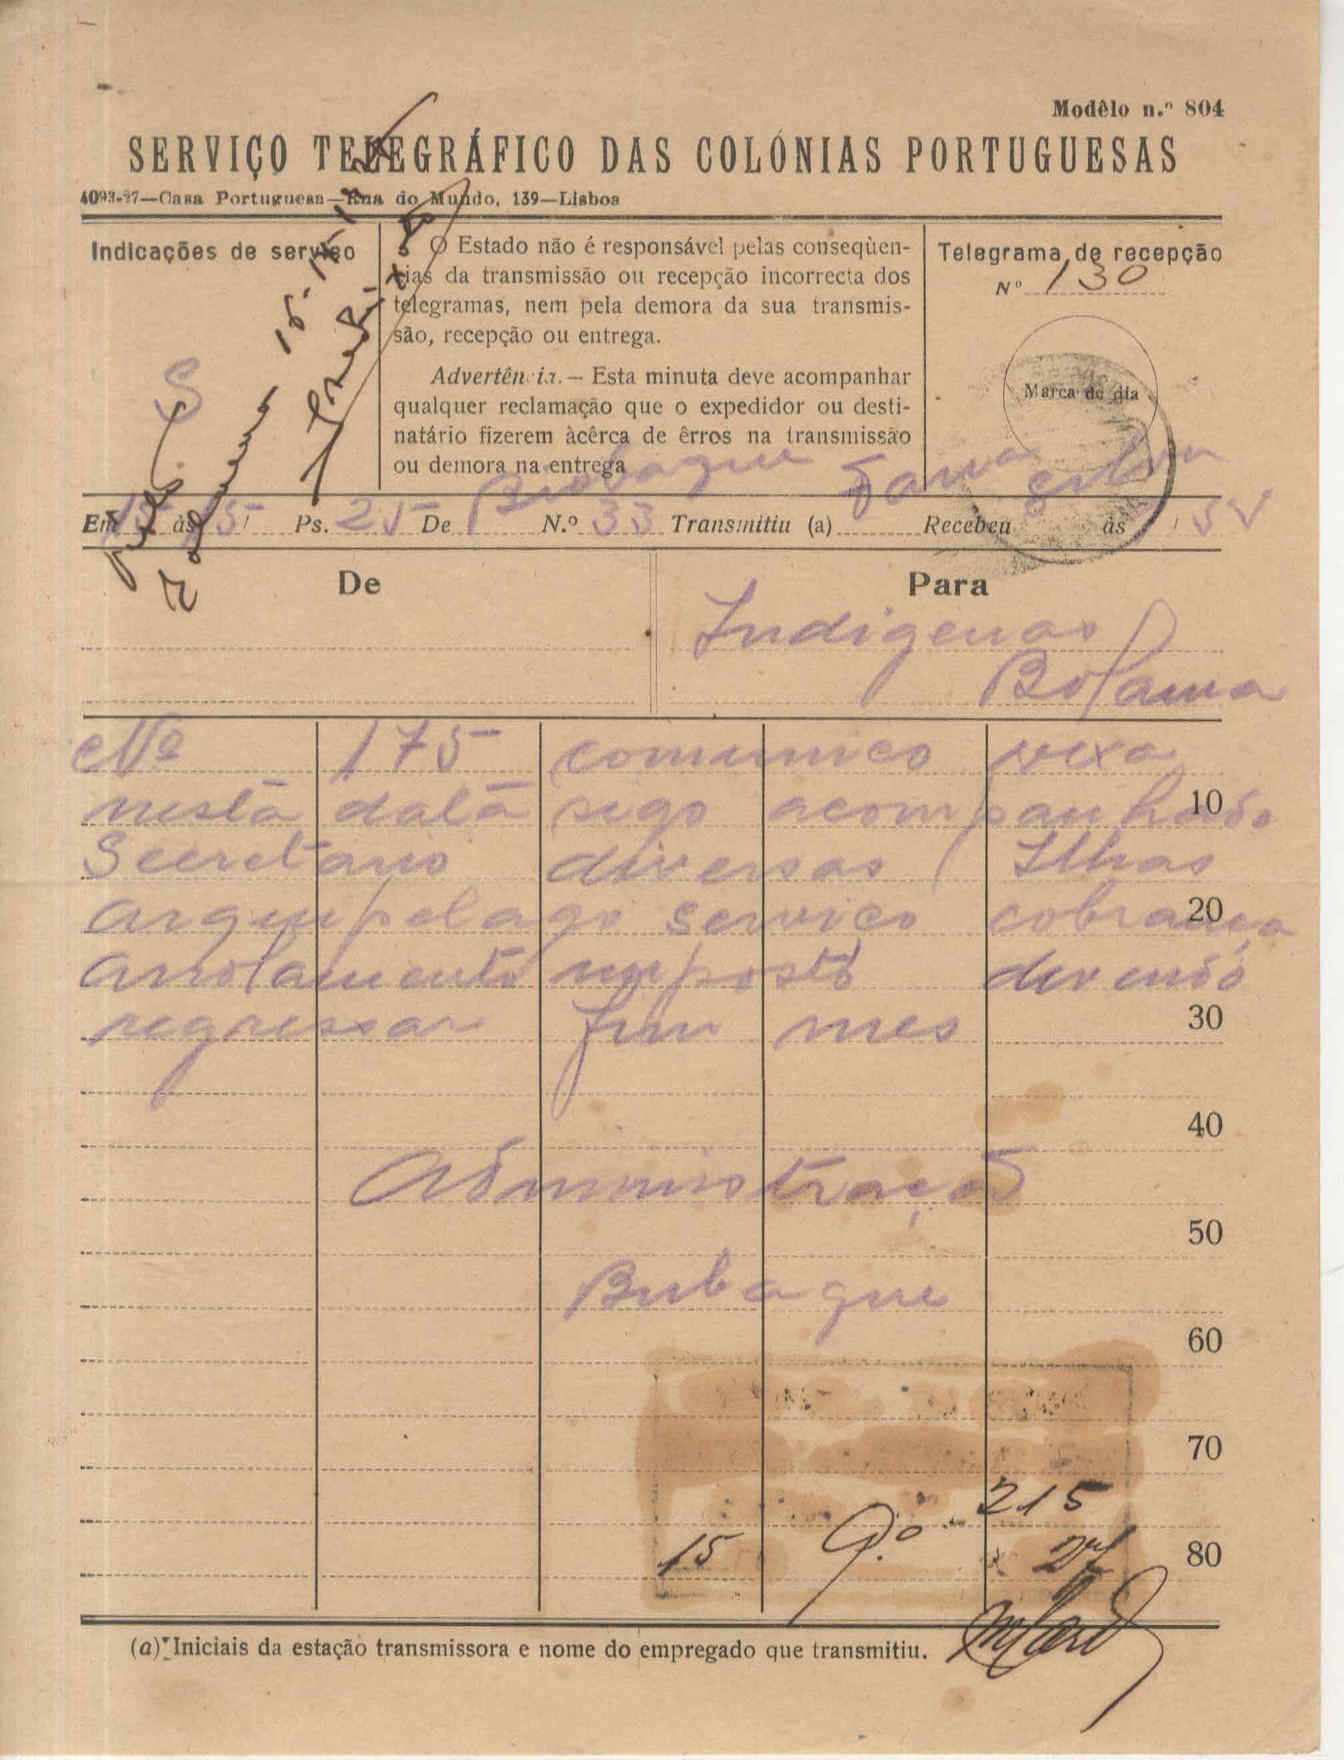 Modêlo n.º 804
SERVIÇO TELEGRÁFICO DAS COLÓNIAS PORTUGUESAS
4093-27—Casa Portuguesa—Rua do Mundo, 139—Lisboa
Indicações de serviço
O Estado não é responsável pelas conseqùen-
cias da transmissão ou recepção incorrecta dos
telegramas, nem pela demora da sua transmis-
são, recepção ou entrega.
Advertência.— Esta minuta deve acompanhar
qualquer reclamação que o expedidor ou desti-
natário fizerem àcêrca de êrros na transmissão
ou demora na entrega
Telegrama de recepção
Nº 130
Marca do dia
S
15-
Em 15 às 15 Ps. 25 De Bubaque N.º 33 Transmitiu (a) Recebeu às
De
Para
Indigenas
Bolama
Nº 175 comunico vexa
nesta data sigo acompanhado
Secretario diversas Ilhas
10
arquipelago serviço cobrança
20
arrolamento imposto devendo
regressar fim mes
30
40
Administração
50
Bubaque
60
70
215
15 9.º 27
80
(a) Iniciais da estação transmissora e nome do empregado que transmitiu.